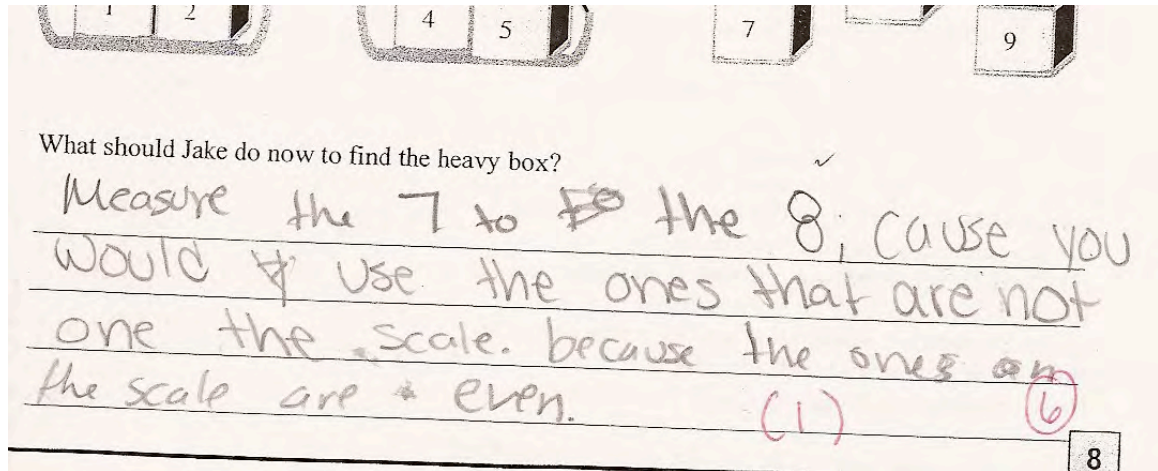 1 2 4 5 7 9
What should Jake do now to find the heavy box?
Measure the 7 to the 8, cause you
would use the ones that are not
one the scale. because the ones on
the scale are even.
(1) 6
8